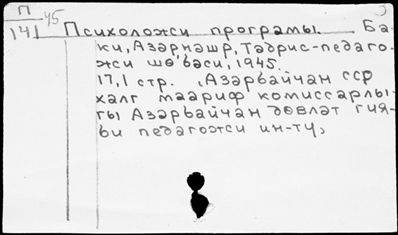 П 45
141 Психоложи програмы. Ба-
ки, Азәрнәшр, Тәдрис-педаго-
жи шө'бәси, 1945.
17,1 стр. (Азәрбайчан сср
халг маариф комиссарлы-
гы Азәрбайчан дөвләт гия-
би педагожи ин-ту)